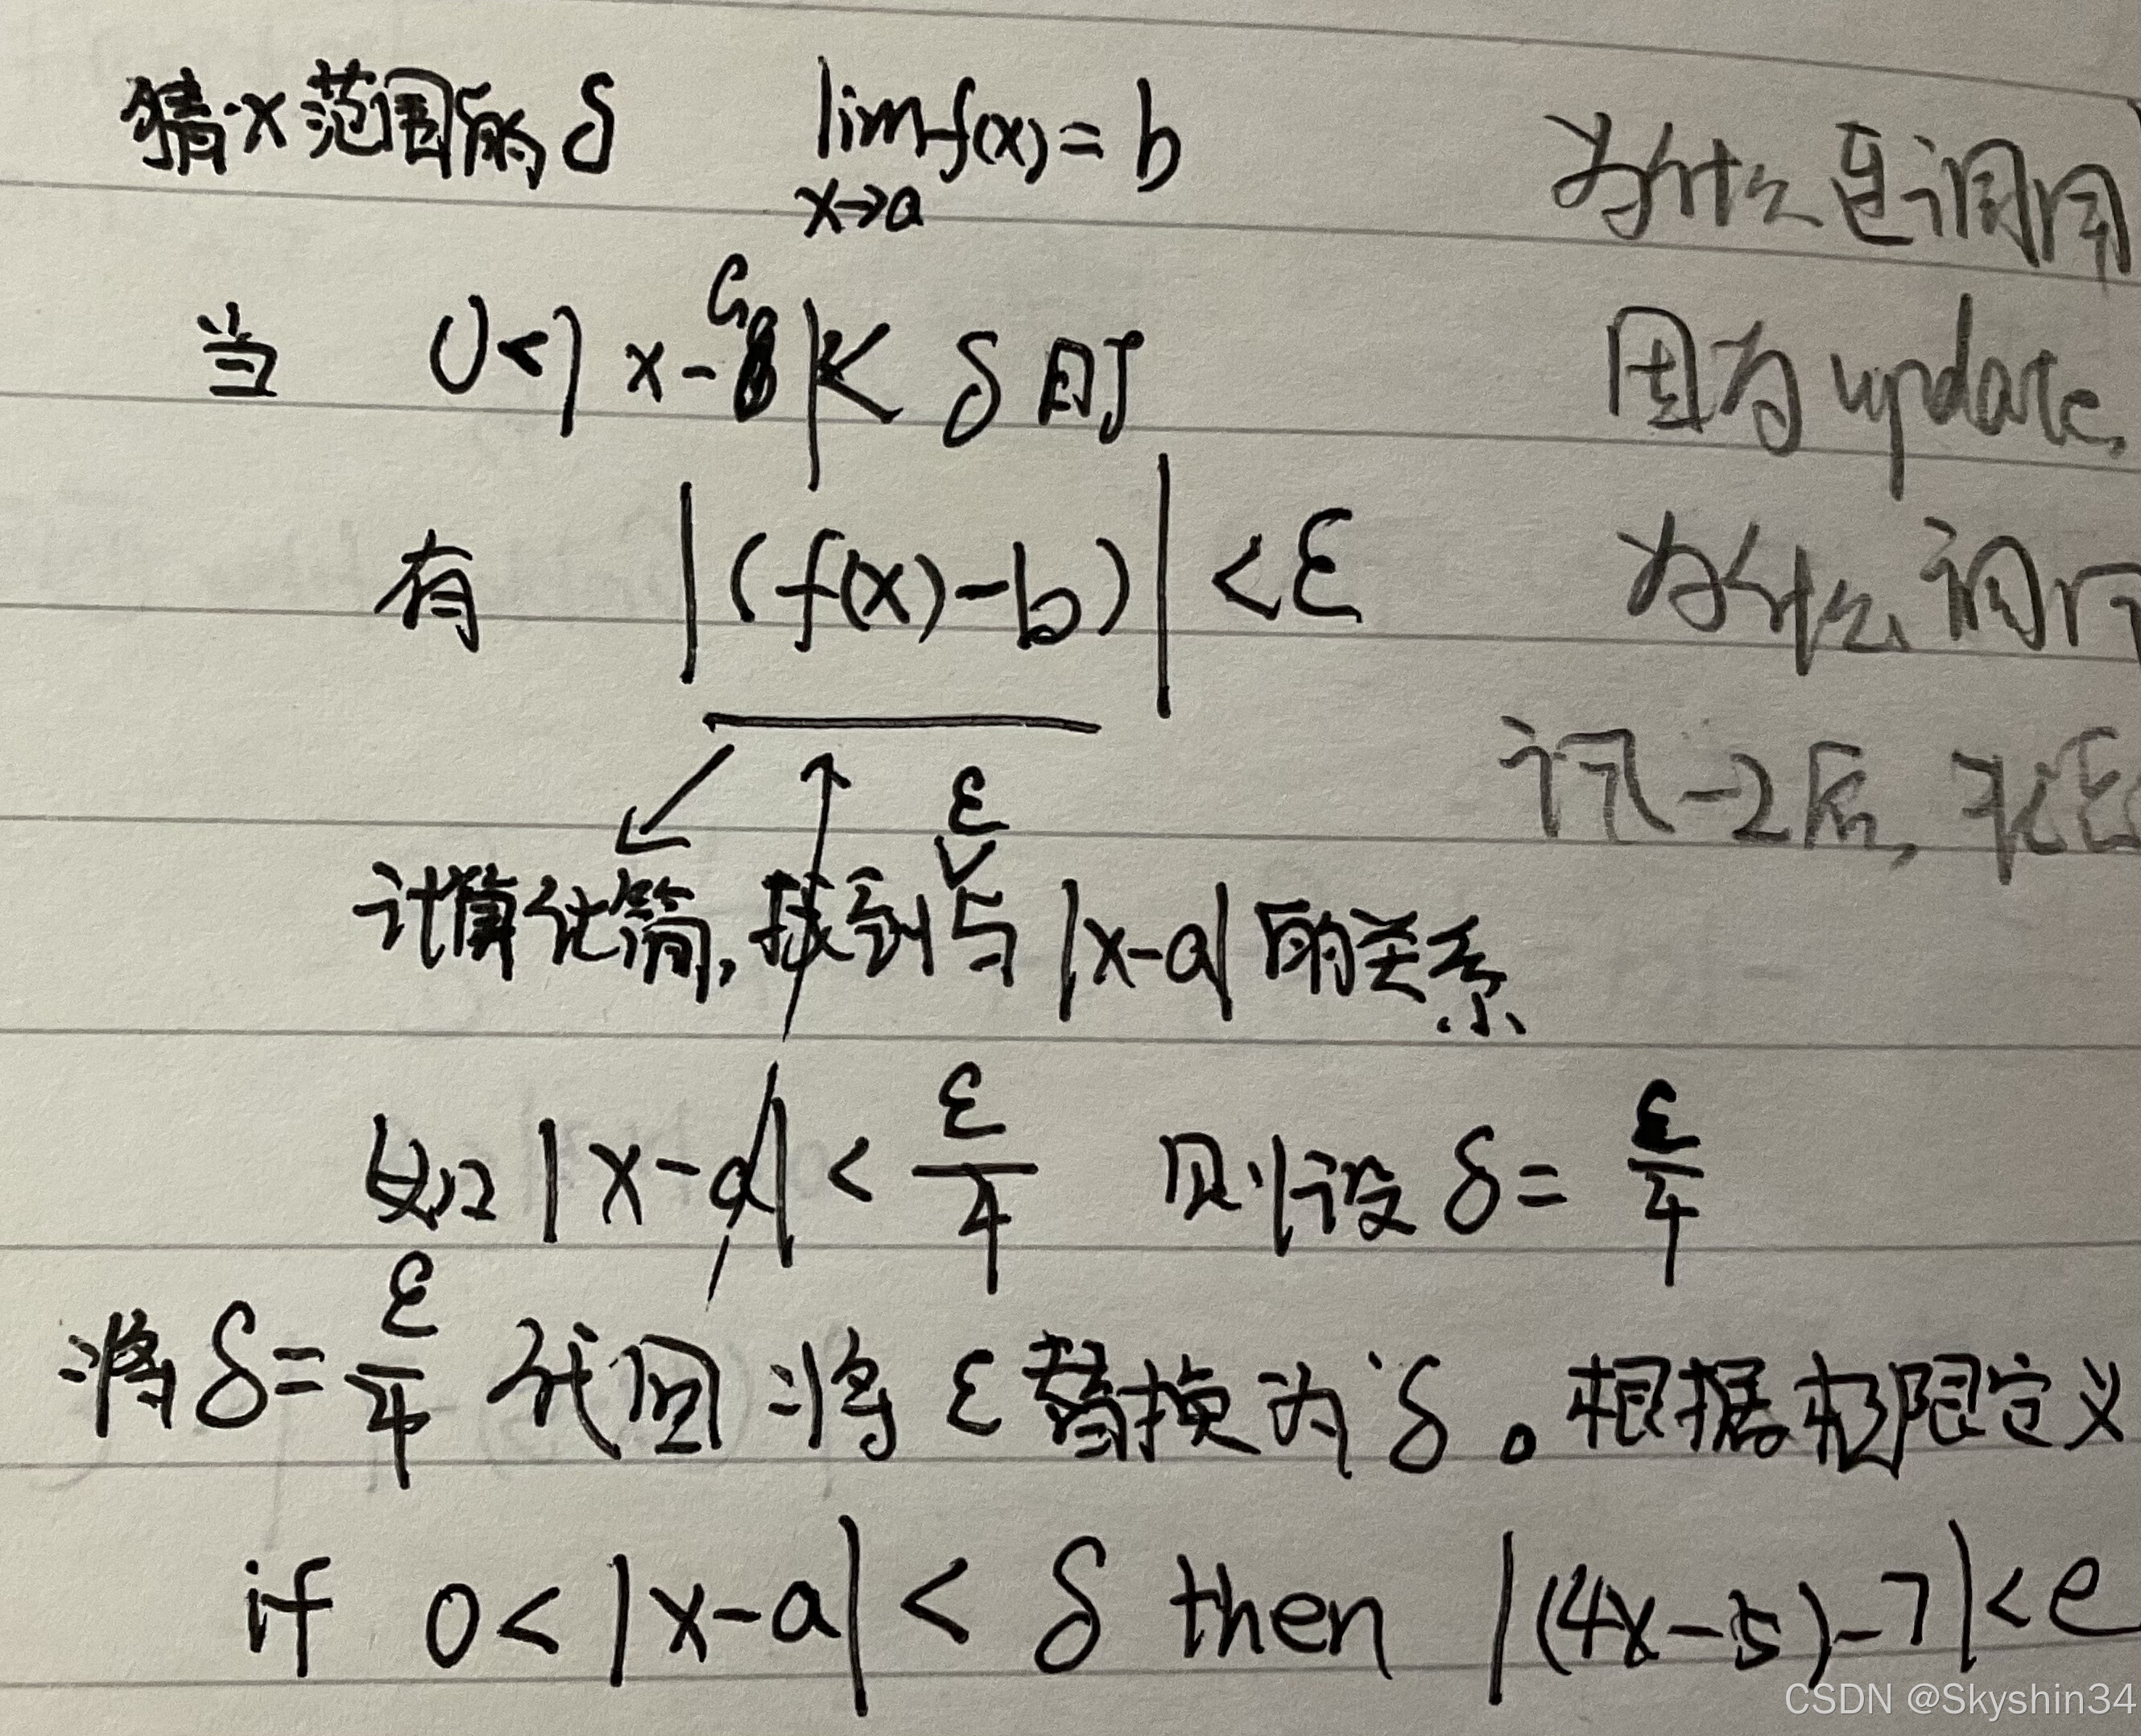 猜x范围的δ lim f(x) = b
x→a
当 0<|x-a|< δ 时
有 |(f(x)-b)| <ε
计算化简,找到与ε |x-a| 的关系
如 |x-a| < ε/4 则设 δ= ε/4
将δ= ε/4 代回 将 ε替换为δ。根据极限定义
if 0<|x-a| < δ then |(4x-5)-7|<e
为什么
因为 update
为什么
-2后,
CSDN @Skyshin34